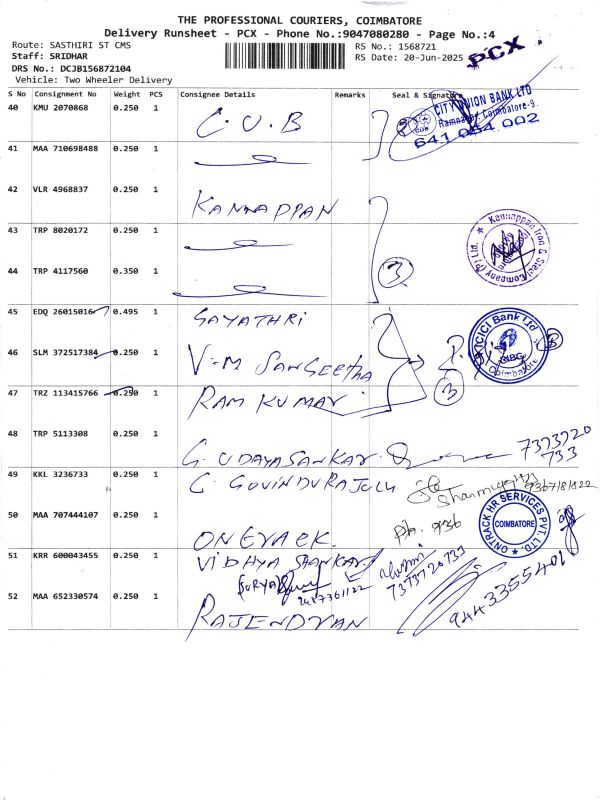 THE PROFESSIONAL COURIERS, COIMBATORE
Delivery Runsheet - PCX - Phone No.:9047080280 - Page No.:4
Route: SASTHIRI ST CMS
RS No.: 1568721
Staff: SRIDHAR
RS Date: 20-Jun-2025
PCX
DRS No.: DCJB156872104
Vehicle: Two Wheeler Delivery
S No Consignment No Weight PCS Consignee Details Remarks Seal & Signature
40 KMU 2070868 0.250 1 C.U.B
CITY UNION BANK LTD
Coimbatore-9.
641 054 002
41 MAA 710698488 0.250 1
42 VLR 4968837 0.250 1 KANNAPPAN
43 TRP 8020172 0.250 1
Kannappan Iron & Steel Company (P) Ltd.
44 TRP 4117560 0.350 1
3
45 EDQ 26015016 0.495 1 GAYATHRI
ICICI Bank Ltd
Coimbatore
46 SLM 372517384 0.250 1 V-M SANGEETHA
3
47 TRZ 113415766 0.250 1 RAM KUMAR
48 TRP 5113308 0.250 1 G. UDAYASANKAR
7373720
733
49 KKL 3236733 0.250 1 C. GOVINDURAJULU
50 MAA 707444107 0.250 1 ONEYACK
ONTRACK HR SERVICES PVT. LTD.
COIMBATORE
51 KRR 600043455 0.250 1 VIDHYA SHANKAR
SURYA
7373720733
52 MAA 652330574 0.250 1 RAJENDRAN
9443355401